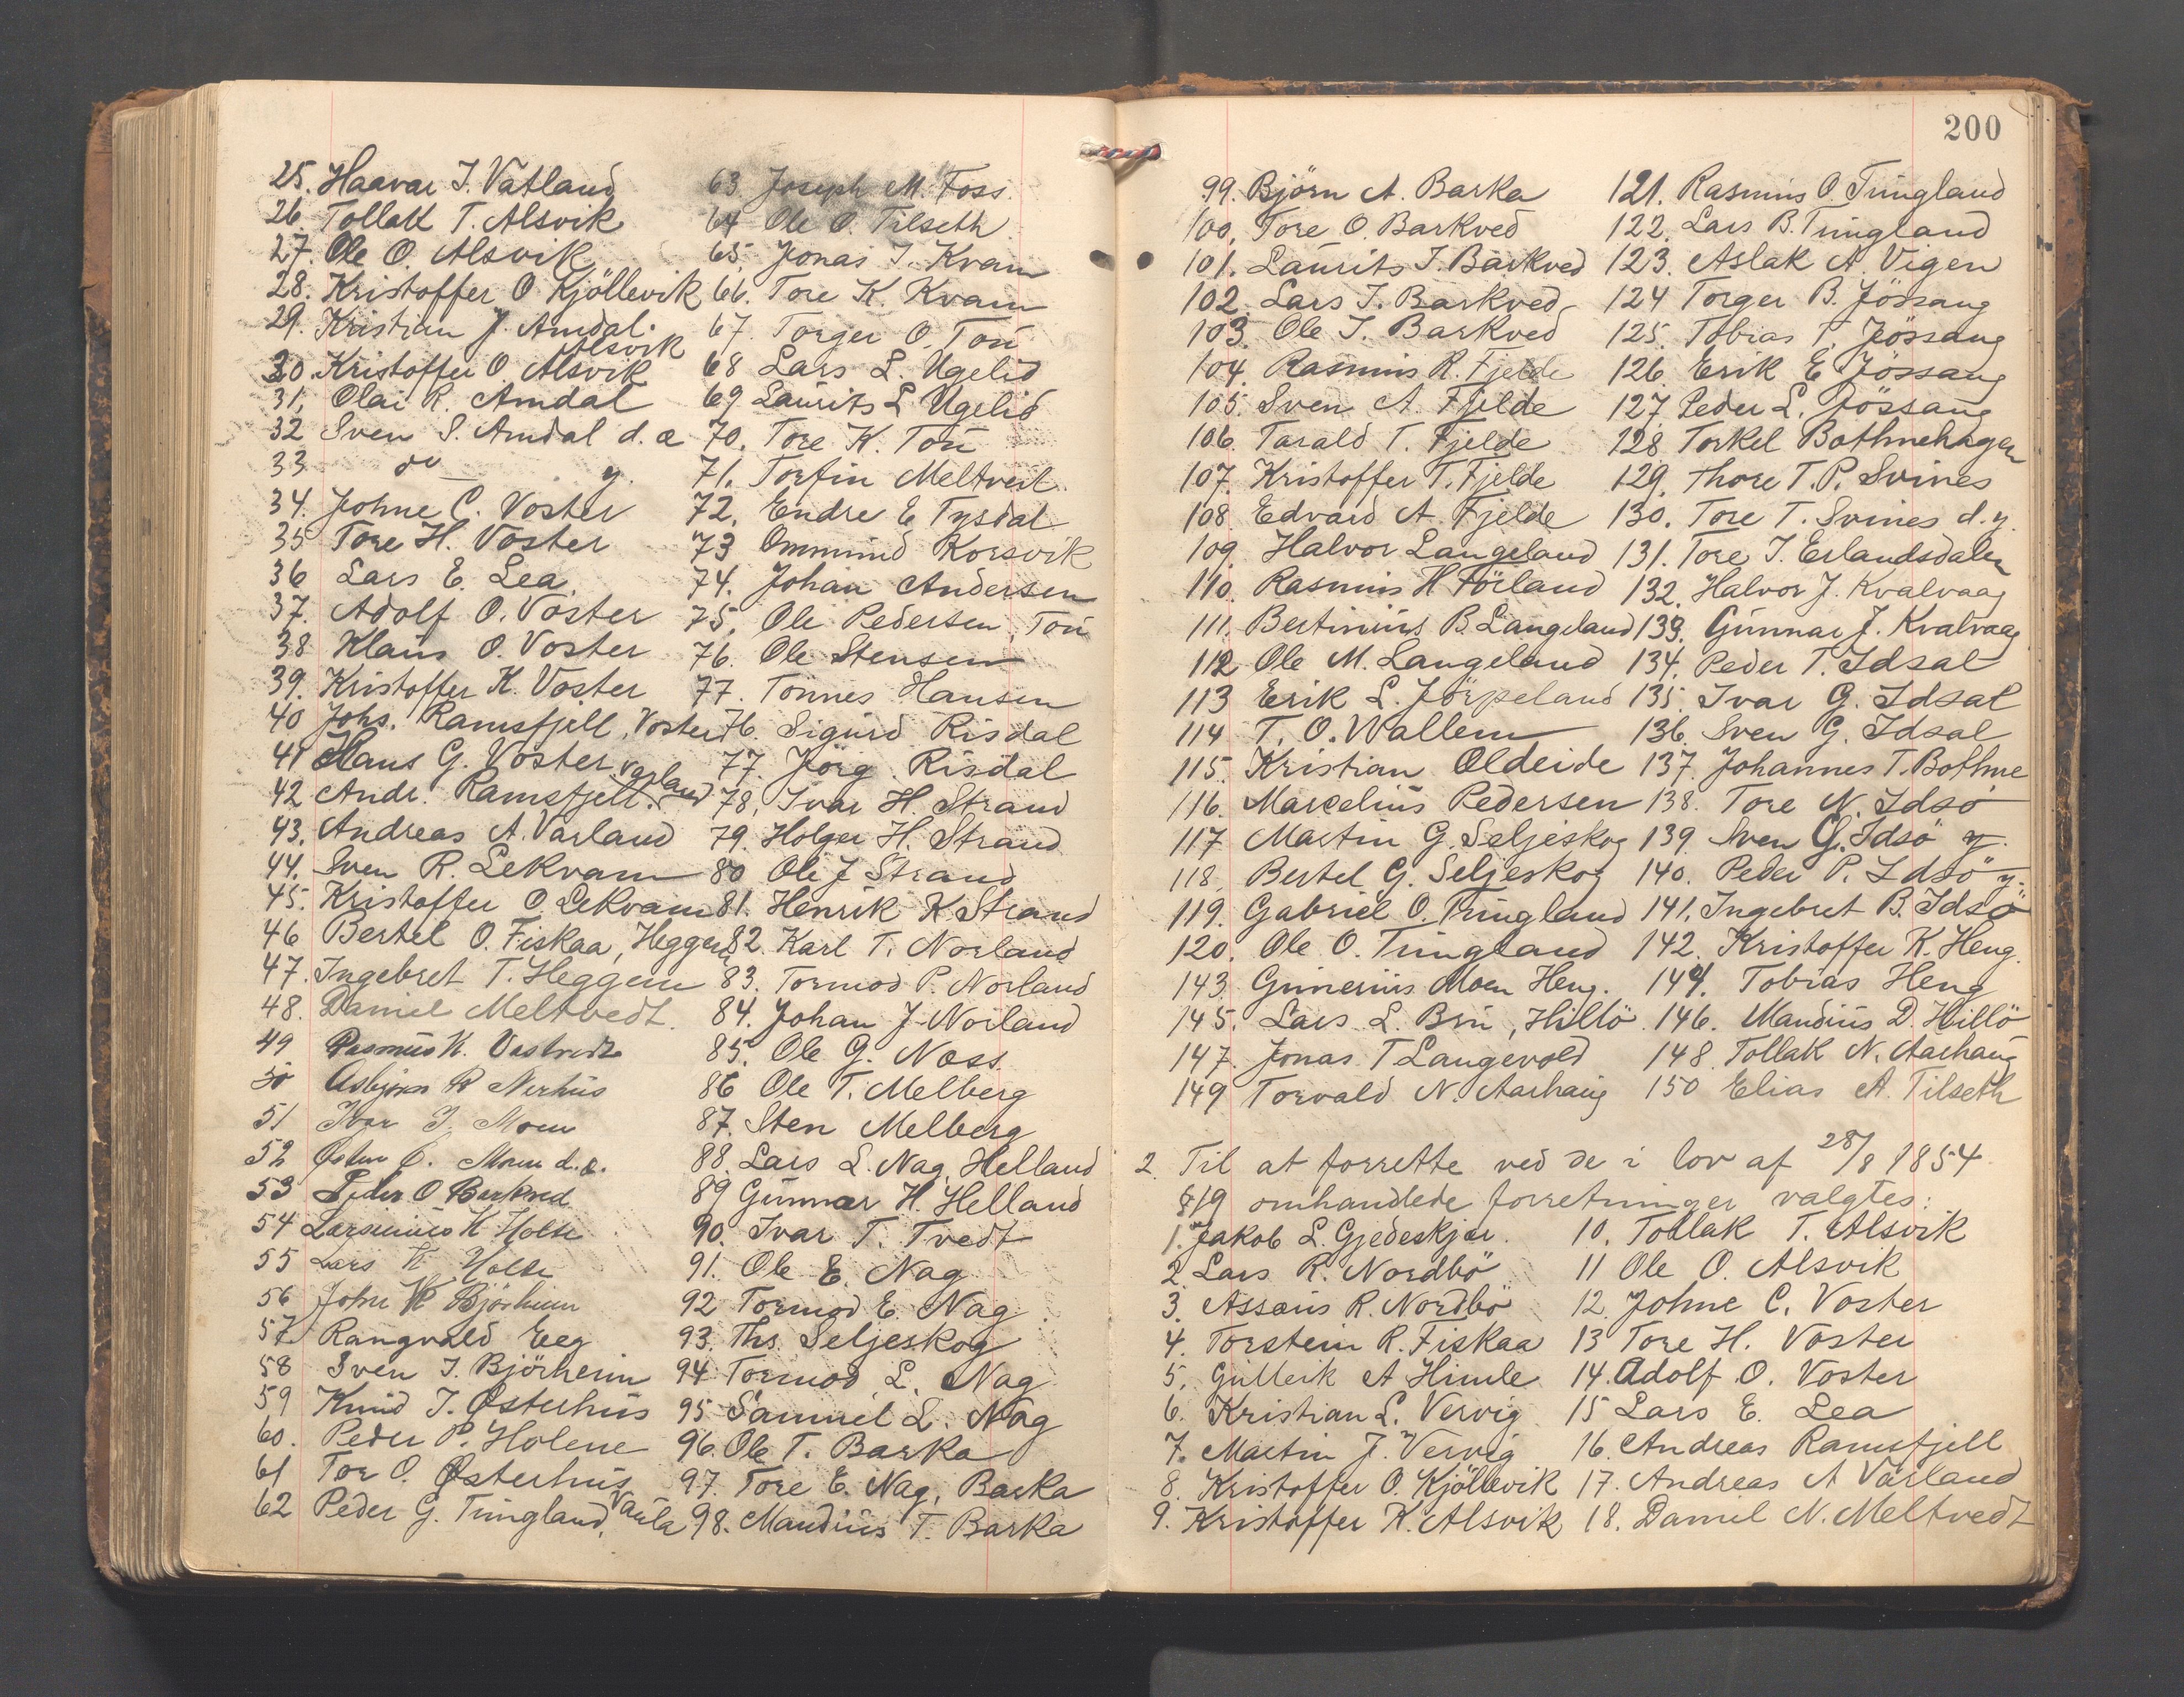 25. Haavar J. Vatland
26. Tollak T. Alsvik
27. Ole O. Alsvik
28. Kristoffer O Kjöllevik
29. Kristian J. Amdal.
Alsvik
30. Kristoffer O. Alsvik
31. Olai R. Amdal
32 Sven S. Amdal d. æ
33 do y.
34. Johne C. Voster
35 Tore H. Voster
36 Lars E. Lea
37. Adolf O. Voster
38 Klaus O. Voster
39. Kristoffer K. Voster
40 Johs. Ramsfjell, Voster
41 Hans G. Voster
42 Andr. Ramsfjell. Varland
43. Andreas A. Varland
44. Sven R. Lekvam
45. Kristoffer O Lekvam
46 Bertel O. Fiskaa, Heggem
47. Ingebret T. Heggem
48. Daniel Meltvedt.
49 Rasmus K.
50 Asbjörn R Nerhus
51 Ivar J. Moen
52 Østen O. Moen d. e.
53 Peder O Barkved
54 Larsinius K Holta
55 Lars K Holta
56 John K Björheim
57 Rangvald Eeg
58 Sven J. Björheim
59 Knud J. Østerhus
60. Peder P. Holene
61 Tor O. Østerhus
62 Peder G. Tungland, Vaula
63. Joseph M. Foss.
64 Ole O. Tilseth
65. Jonas J. Kvam
66. Tore K. Kvam
67 Torger O. Tou
68 Lars L. Ugelid
69 Laurits L Ugelid
70. Tore K. Tou
71. Torfin Meltveit.
72. Endre E Tysdal
73 Ommund Korsvik
74. Johan Andersen
75. Ole Pedersen, Tou
76. Ole Stensen
77. Tönnes Hansen
76. Sigurd Risdal
77. Jörg Risdal
78. Ivar H. Strand
79. Holger H. Strand
80 Ole J Strand
81. Henrik K Strand
82. Karl T. Norland
83. Tormod P. Norland
84. Johan J. Norland
85. Ole G. Næss
86 Ole T. Melberg
87. Sten Melberg
88. Lars L. Nag, Helland
89 Gunnar H. Helland
90. Ivar T. Tvedt
91. Ole E. Nag
92 Tormod E. Nag
93. Ths. Seljeskog
94 Tormod L. Nag
95 Samuel L. Nag
96. Ole T. Barka
97. Tore E. Nag, Barka
98. Maudius T. Barka
200
99. Björn A. Barka
100. Tore O. Barkved
101. Laurits J. Barkved
102. Lars J. Barkved
103. Ole J. Barkved
104. Rasmus R. Fjelde
105. Sven A. Fjelde
106. Tarald T. Fjelde
107. Kristoffer T. Fjelde
108. Edvard A. Fjelde
109. Halvor Langeland
110. Rasmus H Förland
111. Bertinius B. Langeland
112 Ole M. Langeland
113 Erik L. Jörpeland
114 T. O. Wallem
115. Kristian Oldeide
116. Marcelius Pedersen
117 Martin G. Seljeskog
118. Bertel G. Seljeskog
119. Gabriel O. Tungland
120. Ole O. Tungland
121. Rasmus O. Tungland
122. Lars B. Tungland
123. Aslak A. Vigen
124 Torger B. Jössang
125. Tobias T. Jössang
126. Erik E. Jössang
127. Peder L. Jössang
128 Torkel Bothnehagen
129. Thore T. P. Svines
130. Tore T. Svines d. y.
131. Tore J. Erlandsdalen
132. Halvor J. Kvalvaag
133. Gunnar J. Kvalvaag
134. Peder T. Idsal
135. Ivar G. Idsal
136. Sven G. Idsal
137. Johannes T. Bothne
138. Tore N. Idsö
139. Sven G. Idsö y.
140. Peder P. Idsö y.
141. Ingebret B. Idsö
142. Kristoffer K. Heng.
143 Gunerius Moen Heng. 144. Tobias Heng
145. Lars L. Bru, Hillö. 146. Maudius D. Hillö
147. Jonas T Langevold 148. Tollak N. Aarhaug
149 Torvald N. Aarhaug 150 Elias A. Tilseth
2. Til at forrette ved de i lov af 28/8 1854
§ 19 omhandlede forretninger valgtes:
1. Jakob L. Gjedeskjær.
2. Lars R. Nordbö
3. Assaus R. Nordbö
4. Torstein R. Fiskaa
5. Gullerik A Himle
6. Kristian L. Vervig
7. Martin J. Vervig
8. Kristoffer O. Kjöllevik
9. Kristoffer K. Alsvik
10. Tollak T. Alsvik
11 Ole O. Alsvik
12. Johne C. Voster
13 Tore H. Voster
14. Adolf O. Voster
15 Lars E. Lea
16. Andreas Ramsfjell
17. Andreas A Varland
18. Daniel N. Meltvedt